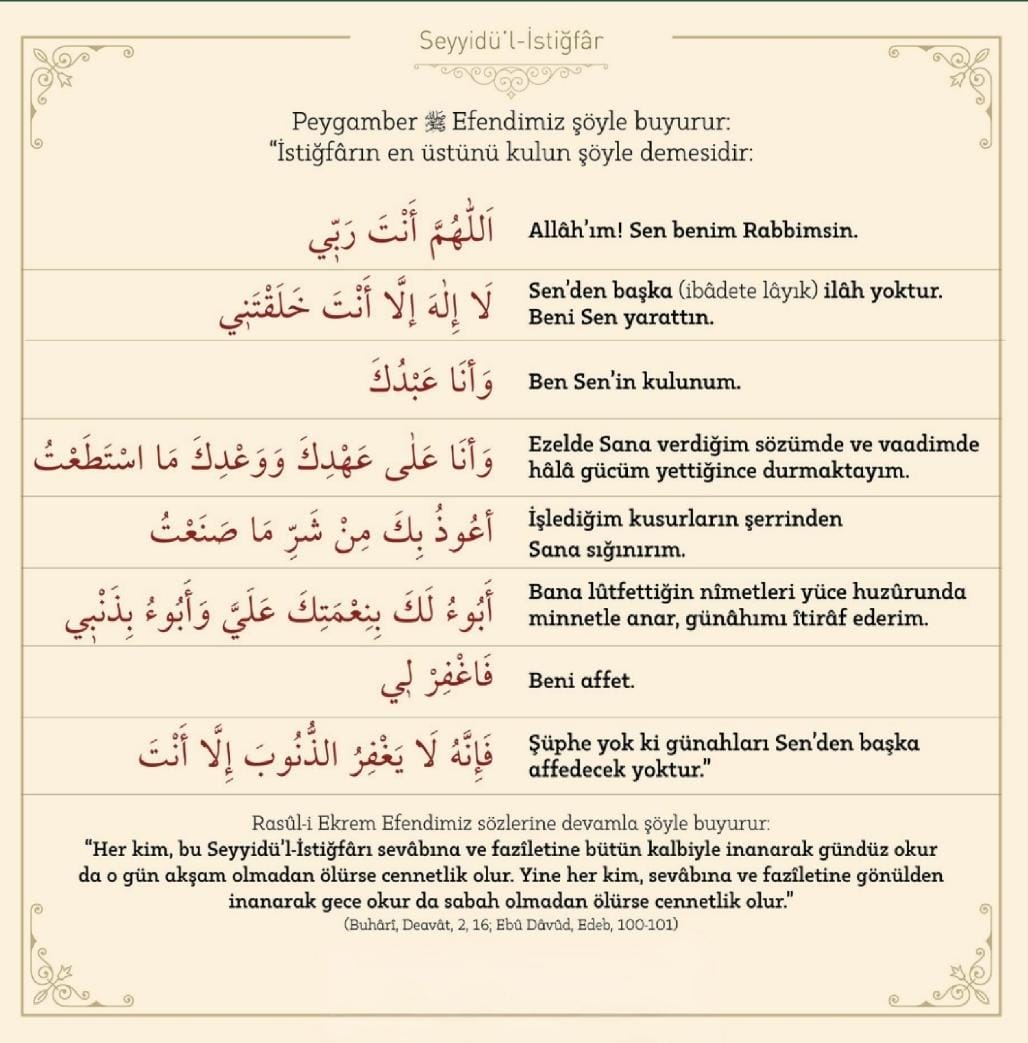 Seyyidü'l-İstiğfâr
Peygamber ﷺ Efendimiz şöyle buyurur:
“İstiğfârın en üstünü kulun şöyle demesidir:
اَللّٰهُمَّ أَنْتَ رَبّ۪ي
Allâh'ım! Sen benim Rabbimsin.
لَا إِلٰهَ إِلَّا أَنْتَ خَلَقْتَن۪ي
Sen'den başka (ibâdete lâyık) ilâh yoktur.
Beni Sen yarattın.
وَأَنَا عَبْدُكَ
Ben Sen'in kulunum.
وَأَنَا عَلٰى عَهْدِكَ وَوَعْدِكَ مَا اسْتَطَعْتُ
Ezelde Sana verdiğim sözümde ve vaadimde
hâlâ gücüm yettiğince durmaktayım.
أَعُوذُ بِكَ مِنْ شَرِّ مَا صَنَعْتُ
İşlediğim kusurların şerrinden
Sana sığınırım.
أَبُوءُ لَكَ بِنِعْمَتِكَ عَلَيَّ وَأَبُوءُ بِذَنْب۪ي
Bana lûtfettiğin nîmetleri yüce huzûrunda
minnetle anar, günâhımı îtirâf ederim.
فَاغْفِرْ ل۪ي
Beni affet.
فَإِنَّهُ لَا يَغْفِرُ الذُّنُوبَ إِلَّا أَنْتَ
Şüphe yok ki günahları Sen'den başka
affedecek yoktur.”
Rasûl-i Ekrem Efendimiz sözlerine devamla şöyle buyurur:
“Her kim, bu Seyyidü'l-İstiğfârı sevâbına ve fazîletine bütün kalbiyle inanarak gündüz okur
da o gün akşam olmadan ölürse cennetlik olur. Yine her kim, sevâbına ve fazîletine gönülden
inanarak gece okur da sabah olmadan ölürse cennetlik olur.”
(Buhârî, Deavât, 2, 16; Ebû Dâvûd, Edeb, 100-101)